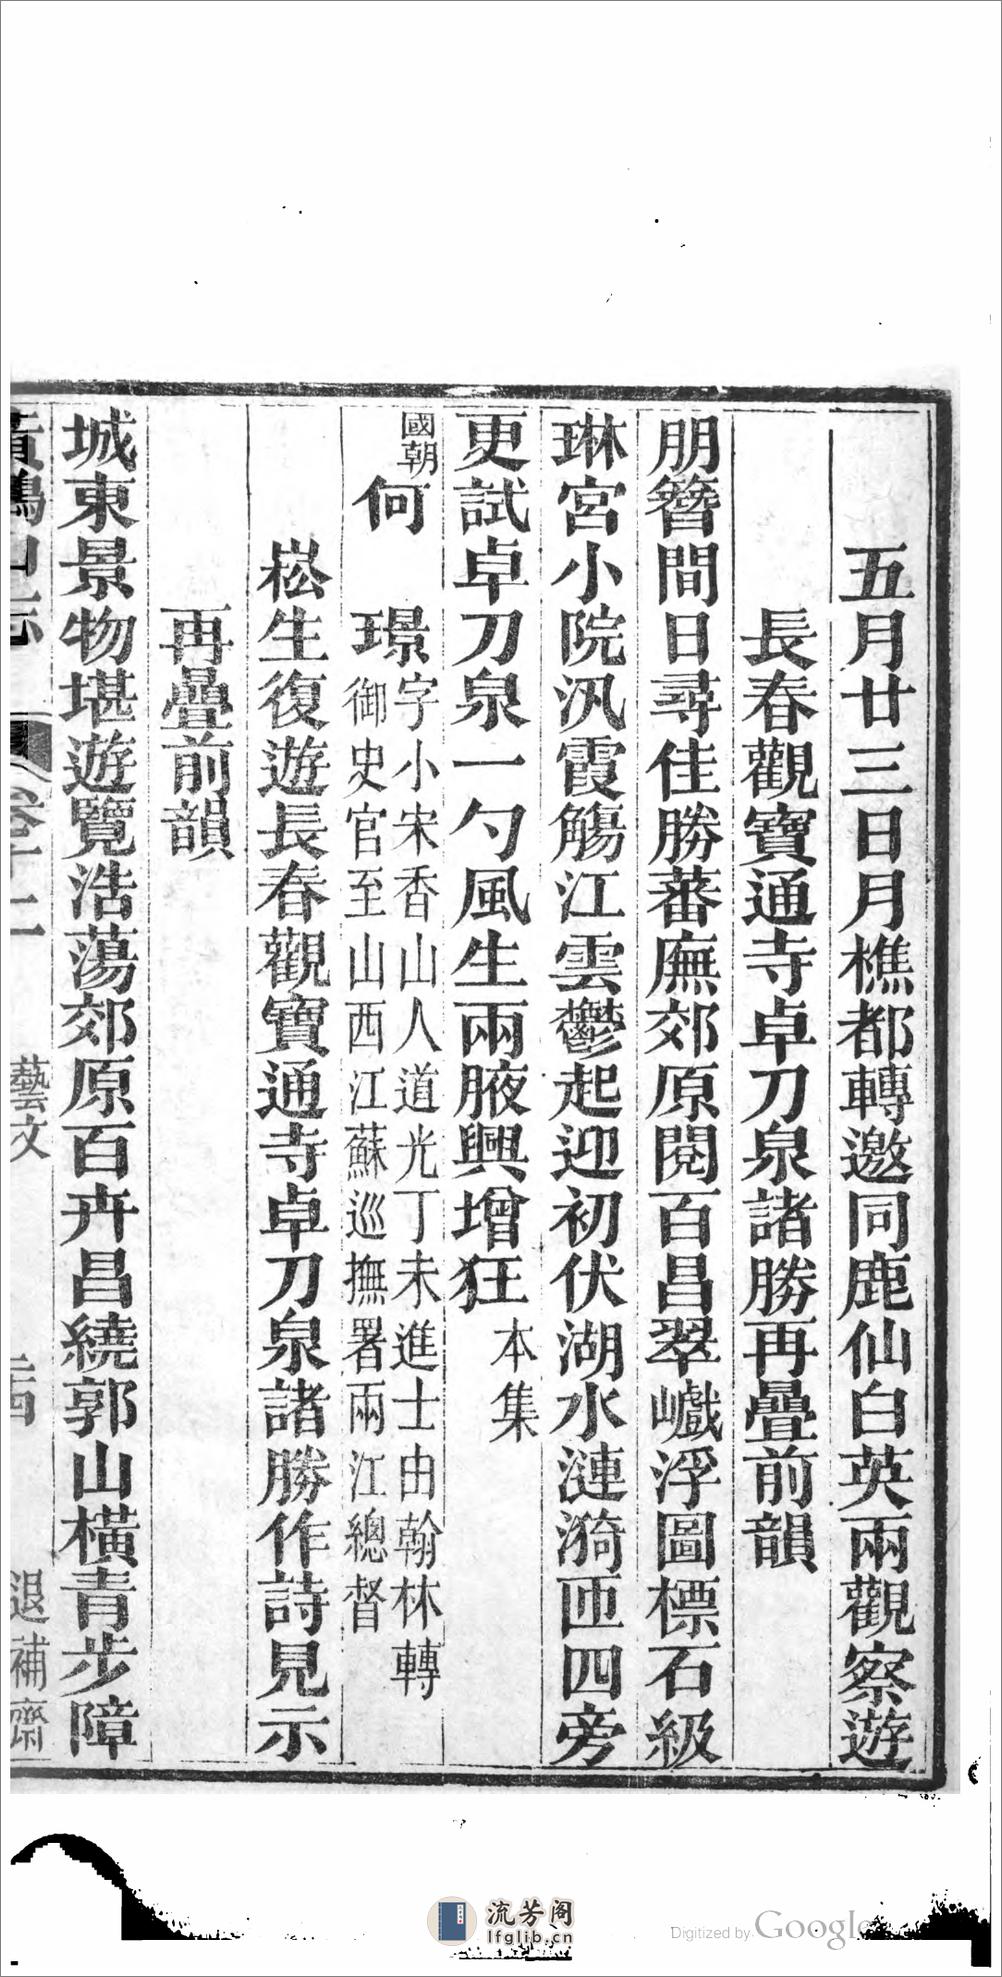 五月廿三日月樵都轉邀同鹿仙白英兩觀察遊
長春觀寶通寺卓刀泉諸勝再疊前韻
朋簪間日尋佳勝蕃廡郊原閱百昌翠巘浮圖標石級
琳宮小院汎霞觴江雲鬱起迎初伏湖水漣漪匝四旁
更試卓刀泉一勺風生兩腋興增狂本集
國朝何璟字小宋香山人道光丁未進士由翰林轉
御史官至山西江蘇巡撫署兩江總督
崧生復遊長春觀寶通寺卓刀泉諸勝作詩見示
再疊前韻
城東景物堪遊覽浩蕩郊原百卉昌繞郭山橫青步障
黃鵠山志 卷十二 藝文 退補齋
流芳阁
lfglib.cn
Digitized by Google